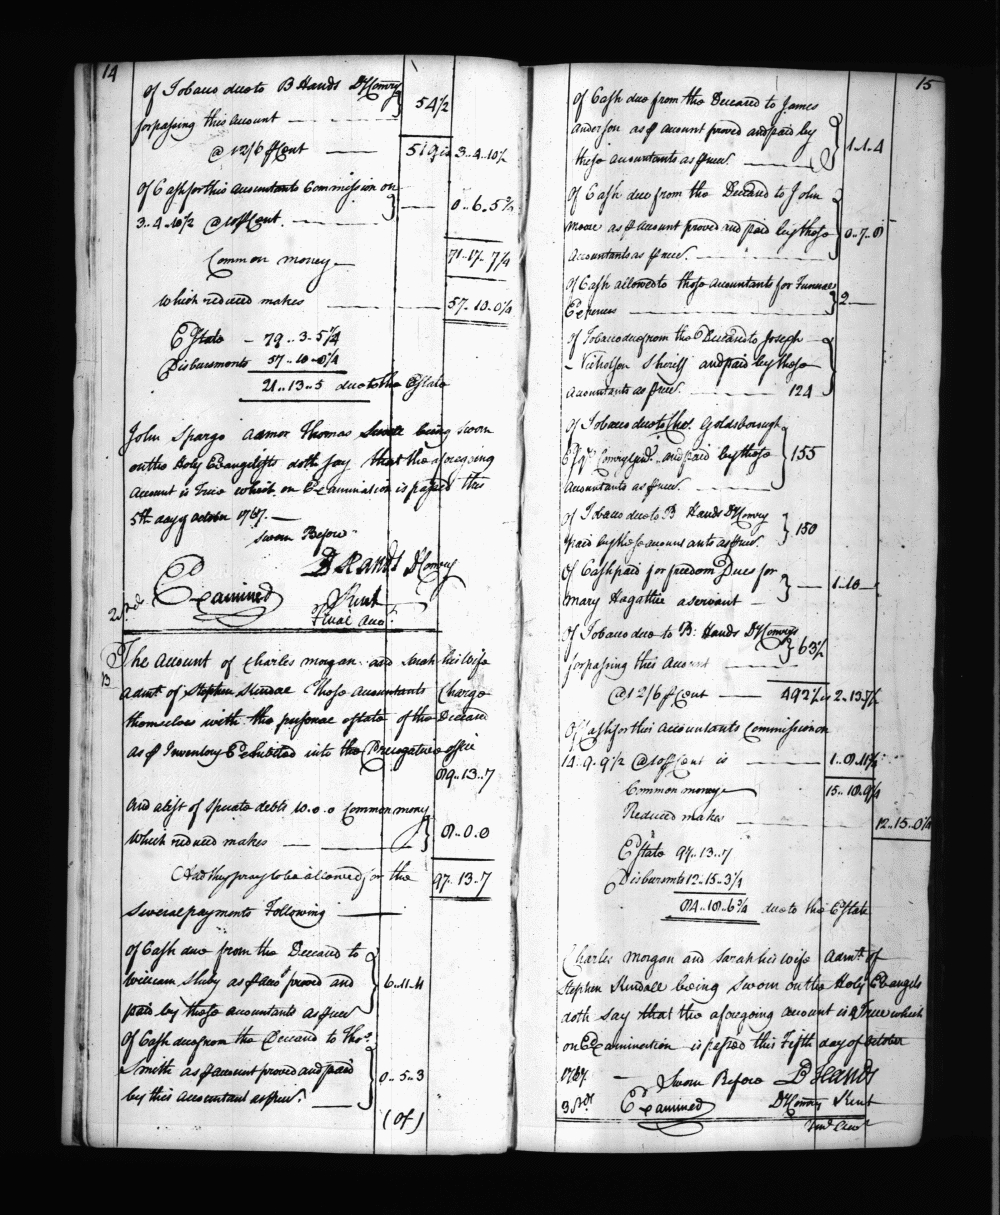 14
of Tobacco due to B Hands D Comry
for passing this Account 54½
@ 12/6 ⅌ Cent 519 is 3..4..10½
Of Cash for this Accountants Commission on
3..4..10½ @ 10 ⅌ Cent. 0..6..5¾
Common money 71..17..7¼
Which reduced makes 57..10..0¼
Estate 79..3..5¼
Disbursments 57..10..0¼
21..13..5 due to the Estate
John Spargo Admor Thomas being sworn
on the Holy Evangelists doth say that the aforegoing
Account is True which on Examination is passed this
5th day of 1767.
Sworn Before
B Hands D Comry
Examined Kent
Final Acco.t
The Account of Charles Morgan and Sarah his Wife
Admrs of Stephen Kindal These Accountants Charge
themselves with the personal estate of the Deceased
as ⅌ Inventory Exhibited into the Prerogative office
89..13..7
And a list of Sperate debts Common money
Which reduced makes 8..0..0
And they pray to be allowed for the 97..13..7
Several payments Following
Of Cash due from the Deceased to
William as ⅌ Acco.t proved and 6..11..4
paid by these accountants as ⅌ rect
Of Cash due from the Deceased to Tho.s
Smith as ⅌ account proved and paid 0..5..3
by this Accountant as ⅌ rect.
(of)
15
Of Cash due from the Deceased to James
Anderson as ⅌ Account proved and paid by
these accountants as ⅌ rect 1..1..4
Of Cash due from the Deceased to John
Moore as ⅌ Account proved and paid by these 0..7..8
Accountants as ⅌ rect.
Of Cash allowed to these Accountants for Funeral
Expences 2
Of Tobacco due from the Deceased to Joseph
Nicholson Sheriff and paid by these
Accountants as ⅌ rect. 124
Of Tobacco due to Tho.s Goldsborough
Esq.r and paid by these 155
Accountants as ⅌ rect.
Of Tobacco due to B Hands D Comry
paid by these accountants as ⅌ rect. 150
Of Cash paid for freedom Dues for
Mary Hagathee a servant 1..10
Of Tobacco due to B. Hands D Comry
for passing this Account 63½
@ 12/6 ⅌ Cent 492½ is 2..13..5½
Of Cash for this Accountants Commission on
14..9..9½ @ 10 ⅌ Cent is 1..8..11¾
Common money 15..18..9¼
Reduced makes 12..15..0¼
Estate 97..13..7
Disbursmts 12..15..3¼
84..18..6¾ due to the Estate
Charles Morgan and Sarah his Wife Admrs of
Stephen Kindall being Sworn on the Holy Evangels
doth say that the aforegoing account is a True which
on Examination is passed this Fifth day of October
1767.
Sworn Before B Hands
Examined D Comry Kent